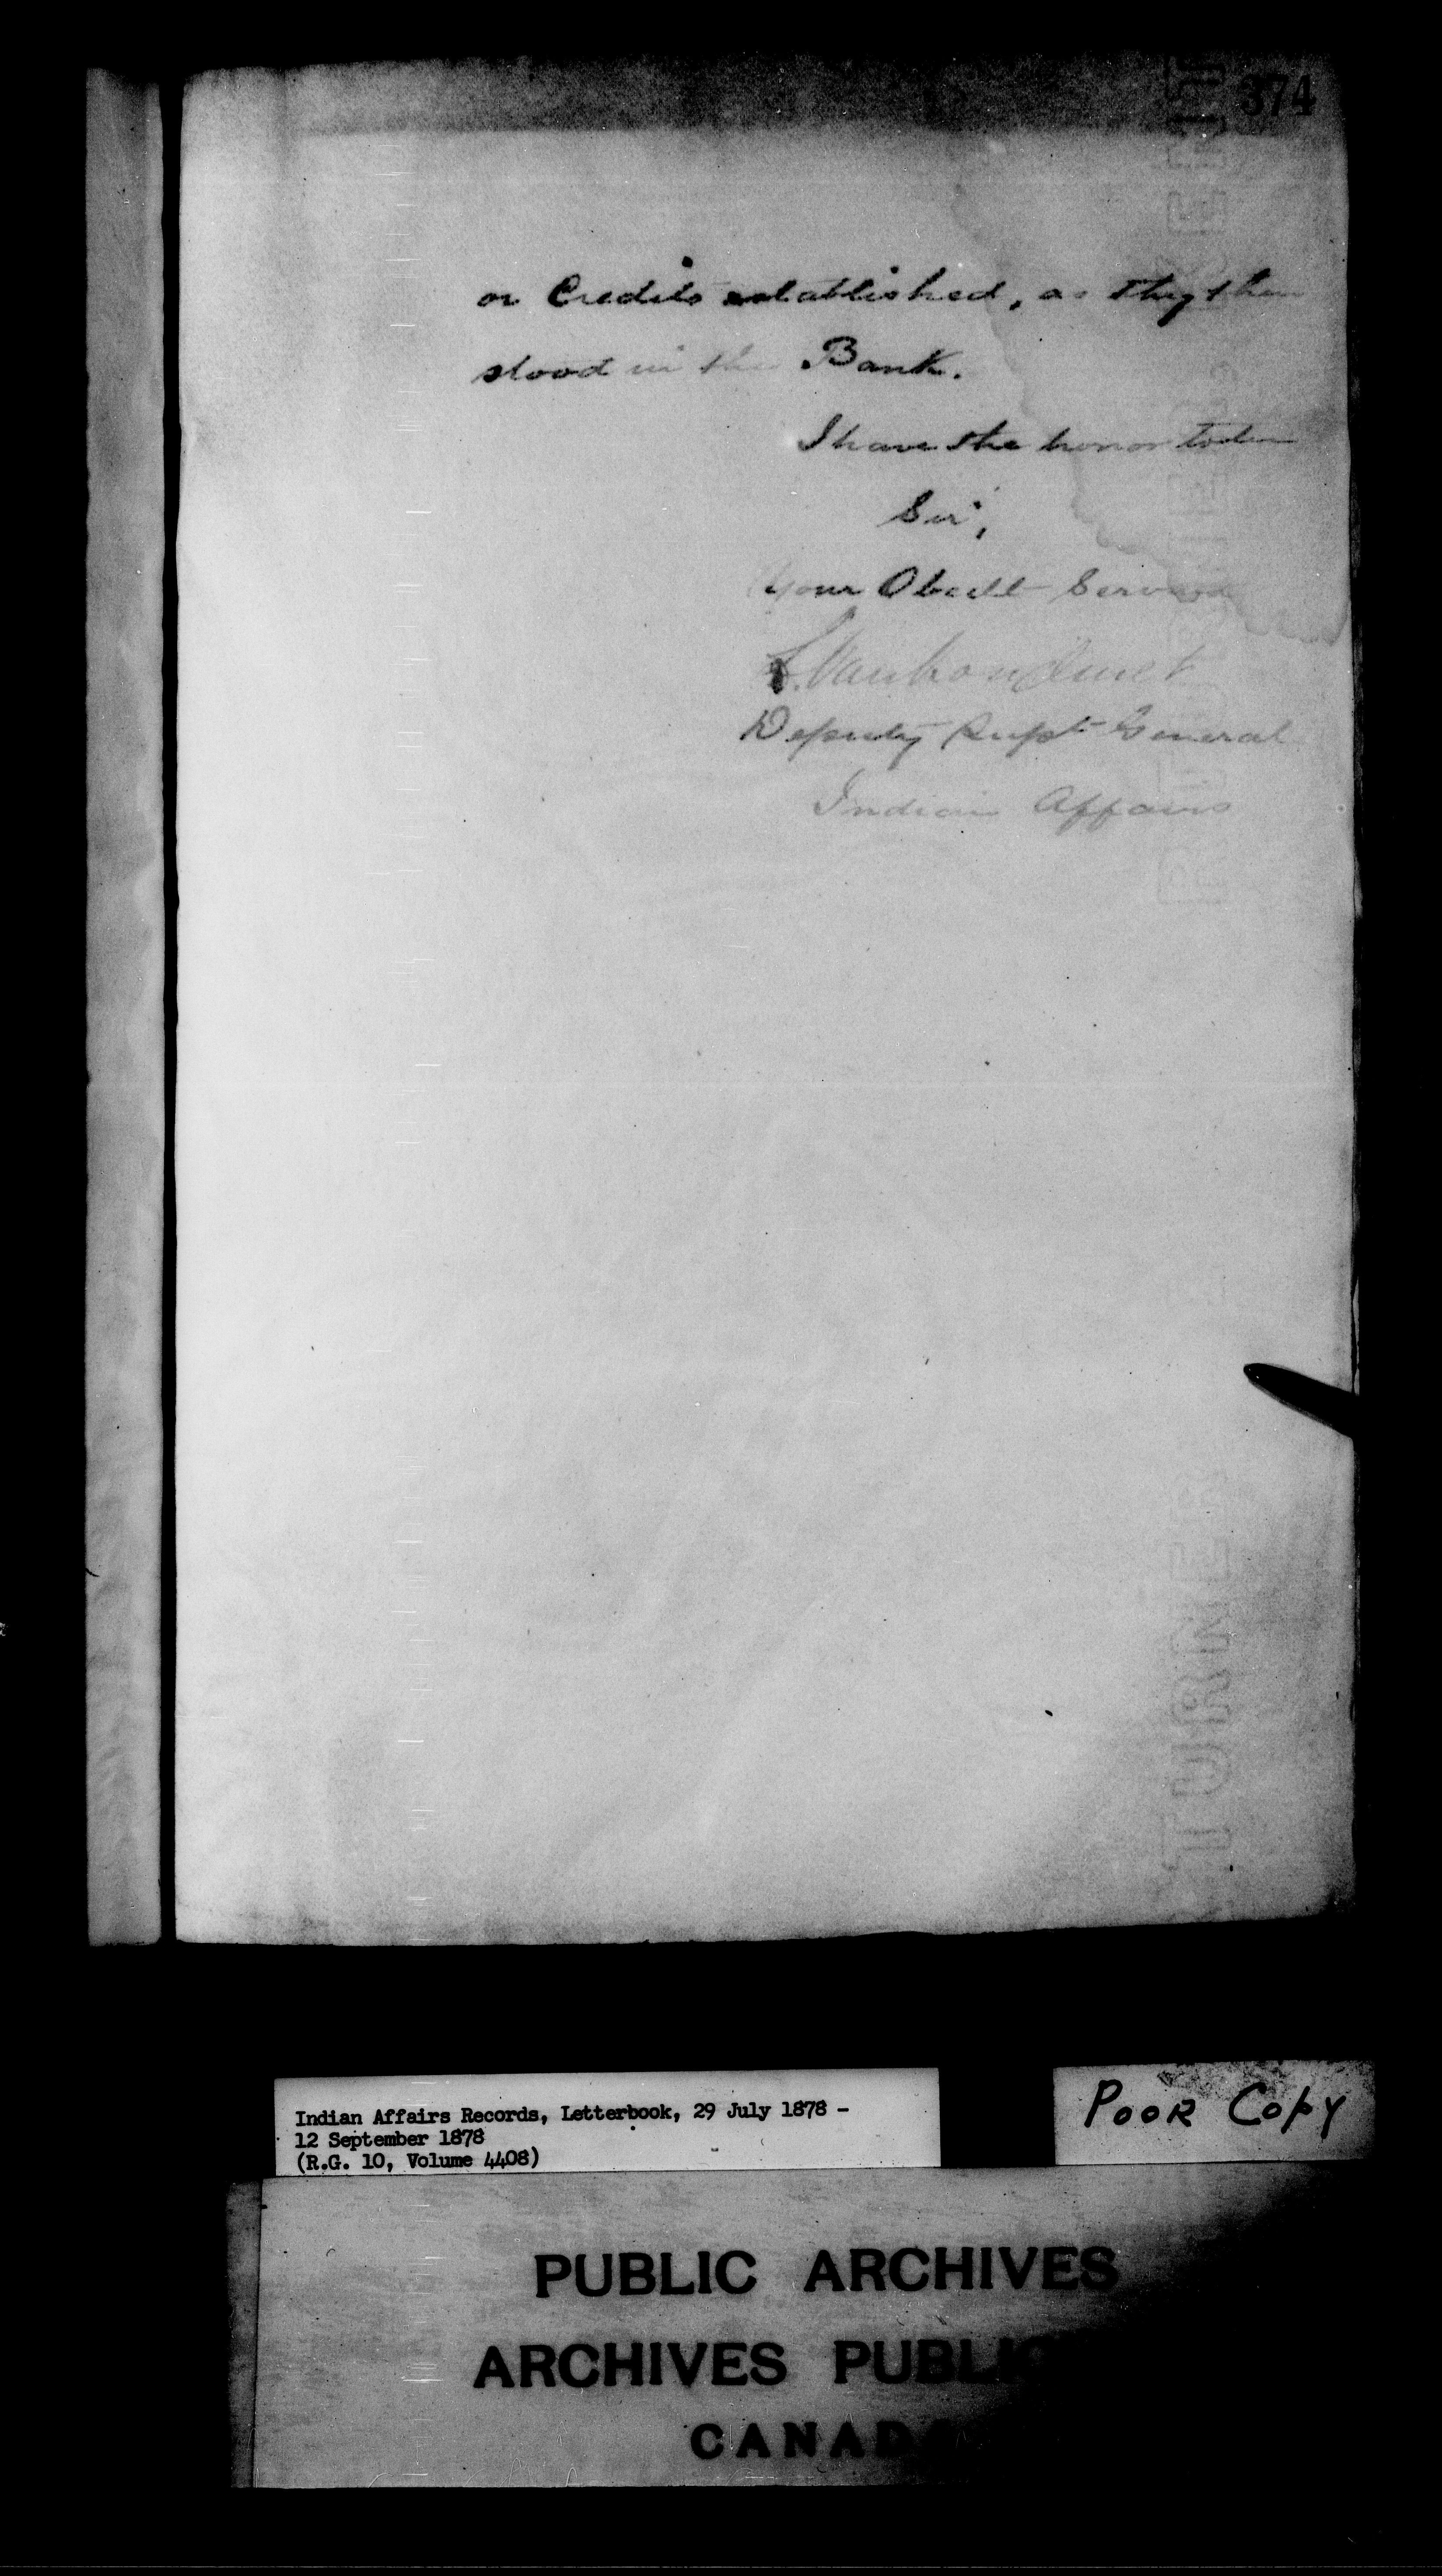 374
or Credits established, as they then
stood in the Bank.
I have the honor to be
Sir,
Your Obedt Servant
L. Vankoughnet
Deputy Supt General
Indian Affairs
Indian Affairs Records, Letterbook, 29 July 1878 -
12 September 1878
(R.G. 10, Volume 4408)
POOR COPY
PUBLIC ARCHIVES
ARCHIVES PUBLIQ
CANADA